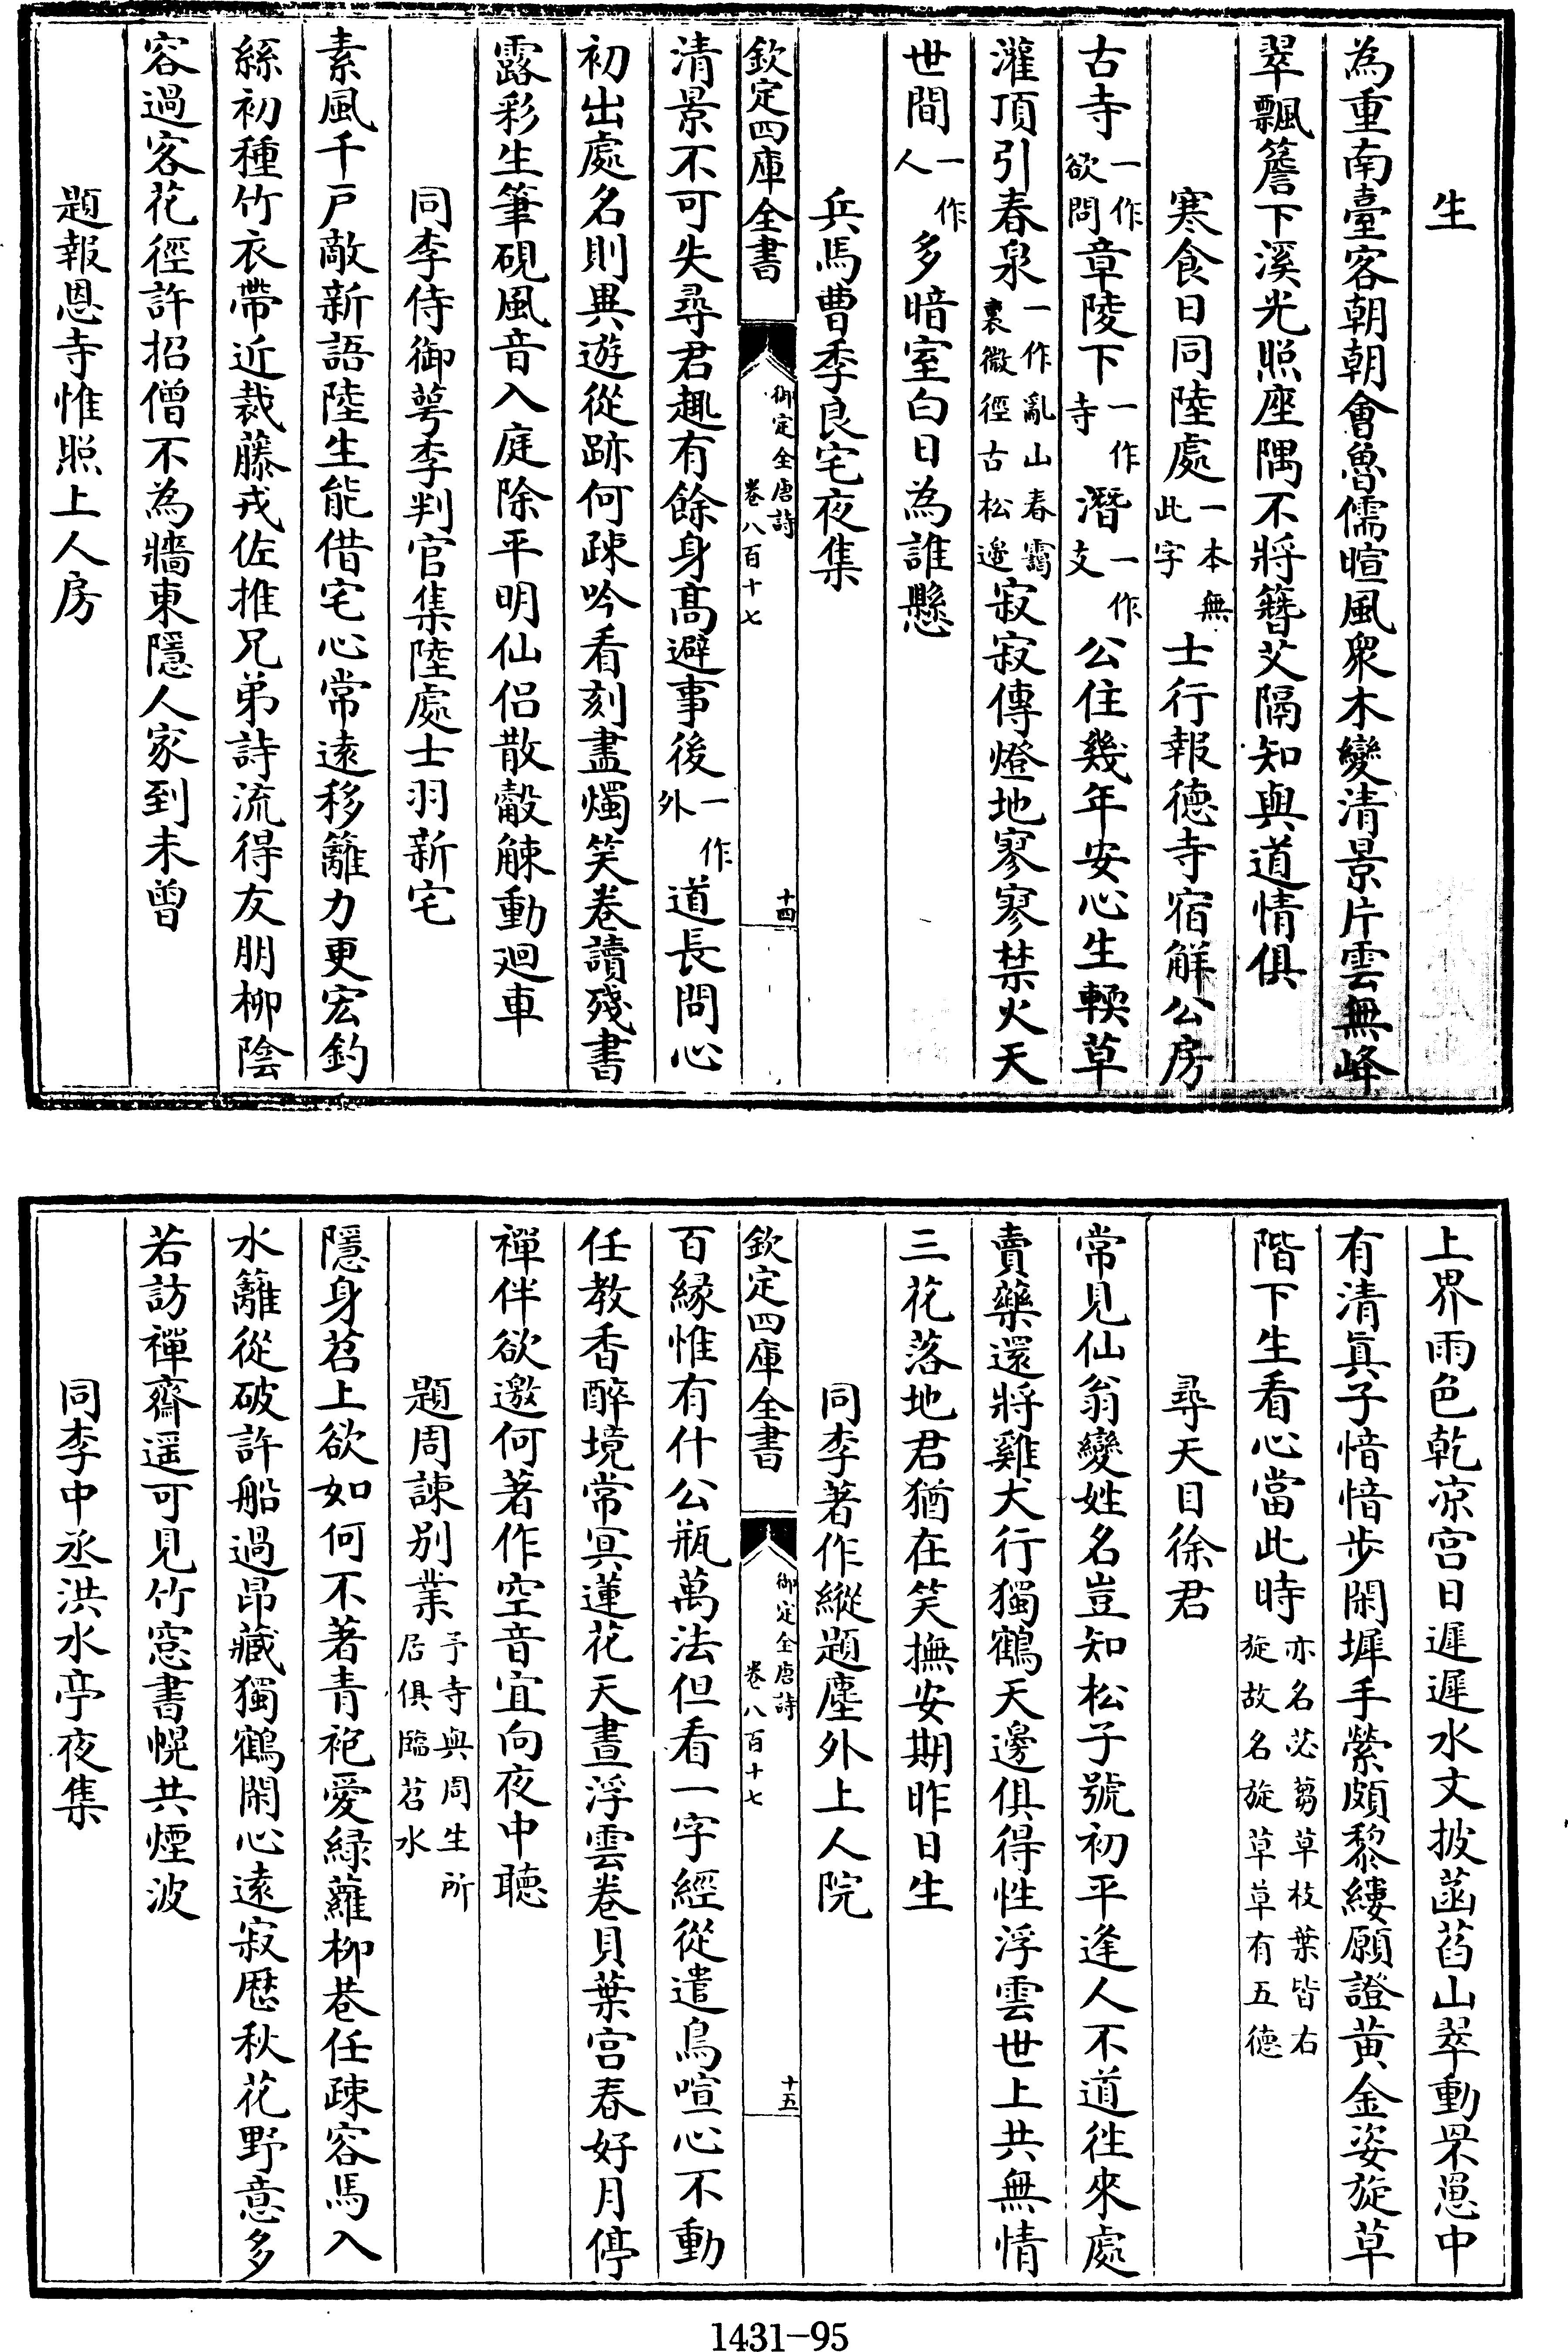 生
為重南臺客朝朝㑹魯儒暄風衆木變清景片雲無峰
翠飄簷下溪光照座隅不將簪艾隔知與道情俱
寒食日同陸處一本無此字士行報徳寺宿解公房
古寺一作欲問章陵下一作寺潛一作支公住幾年安心生軟草
灌頂引春泉一作亂山春靄裏微徑古松邊寂寂傳燈地寥寥禁火天
世間一作人多暗室白日為誰懸
兵馬曹季良宅夜集
欽定四庫全書
御定全唐詩
卷八百十七
十四
清景不可失尋君趣有餘身髙避事後一作外道長問心
初出處名則異遊從跡何疎吟看刻盡燭笑卷讀殘書
露彩生筆硯風音入庭除平明仙侣散觳觫動廻車
同李侍御蕚李判官集陸處士羽新宅
素風千戸敵新語陸生能借宅心常逺移籬力更宏釣
絲初種竹衣帶近裁藤戎佐推兄弟詩流得友朋柳陰
容過客花徑許招僧不為牆東隱人家到未曾
題報恩寺惟照上人房
上界雨色乾凉宫日遲遲水文披菡萏山翠動罘罳中
有清眞子愔愔步閑墀手縈頗黎縷願證黄金姿旋草
階下生看心當此時亦名苾蒭草枝葉皆右旋故名旋草草有五徳
尋天目徐君
常見仙翁變姓名豈知松子號初平逢人不道徃來處
賣藥還將雞犬行獨鶴天邊俱得性浮雲世上共無情
三花落地君猶在笑撫安期昨日生
同李著作縱題塵外上人院
欽定四庫全書
御定全唐詩
卷八百十七
十五
百縁惟有什公瓶萬法但看一字經從遣鳥喧心不動
任教香醉境常冥蓮花天晝浮雲卷貝葉宫春好月停
禪伴欲邀何著作空音宜向夜中聽
題周諫别業予寺與周生所居俱臨苕水
隱身苕上欲如何不著青袍愛緑蘿柳巷任疎容馬入
水籬從破許船過昂藏獨鶴閑心逺寂歴秋花野意多
若訪禪齋遥可見竹窓書幌共煙波
同李中丞洪水亭夜集
1431-95